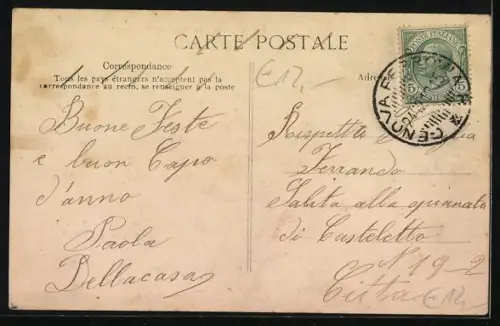 CARTE POSTALE
Correspondance
Tous les pays étrangers n'acceptent pas la
correspondance au recto, se renseigner à la poste
Buone Feste
e buon Capo
d'anno
Paola
Dellacasa
€12,-
Adre
POSTE ITALIANE
5 5
GENOVA FERROVIA
24
Rispetta
Ferrando
Salita alla spianata
di Casteletto
N 19-2
Città
€12,-